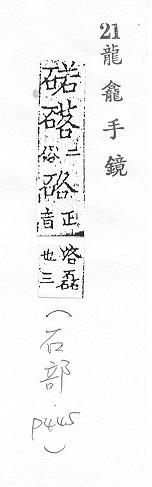 21 龍龕手鏡
二俗硌正音洛磊也三
（石部 P445）